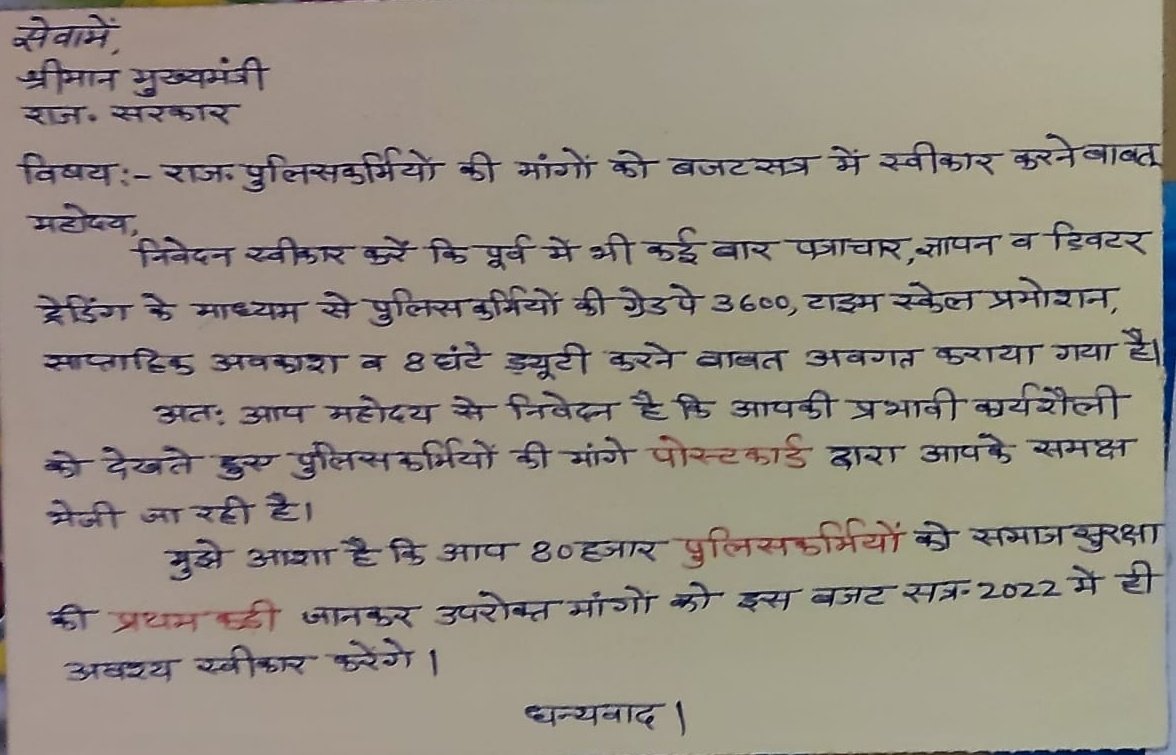 सेवामें,
श्रीमान मुख्यमंत्री
राज. सरकार
विषय:- राज. पुलिसकर्मियों की मांगों को बजटसत्र में स्वीकार करने बाबत्
महोदय,
निवेदन स्वीकार करें कि पूर्व में भी कई बार पत्राचार, ज्ञापन व ट्विटर
ट्रेडिंग के माध्यम से पुलिसकर्मियों की ग्रेड पे 3600, टाइम स्केल प्रमोशन,
साप्ताहिक अवकाश व 8 घंटे ड्यूटी करने बाबत अवगत कराया गया है।
अत: आप महोदय से निवेदन है कि आपकी प्रभावी कार्यशैली
को देखते हुए पुलिसकर्मियों की मांगे पोस्टकार्ड द्वारा आपके समक्ष
भेजी जा रही है।
मुझे आशा है कि आप 80 हजार पुलिसकर्मियों को समाज सुरक्षा
की प्रथम कड़ी जानकर उपरोक्त मांगों को इस बजट सत्र-2022 में ही
अवश्य स्वीकार करेंगे।
धन्यवाद।